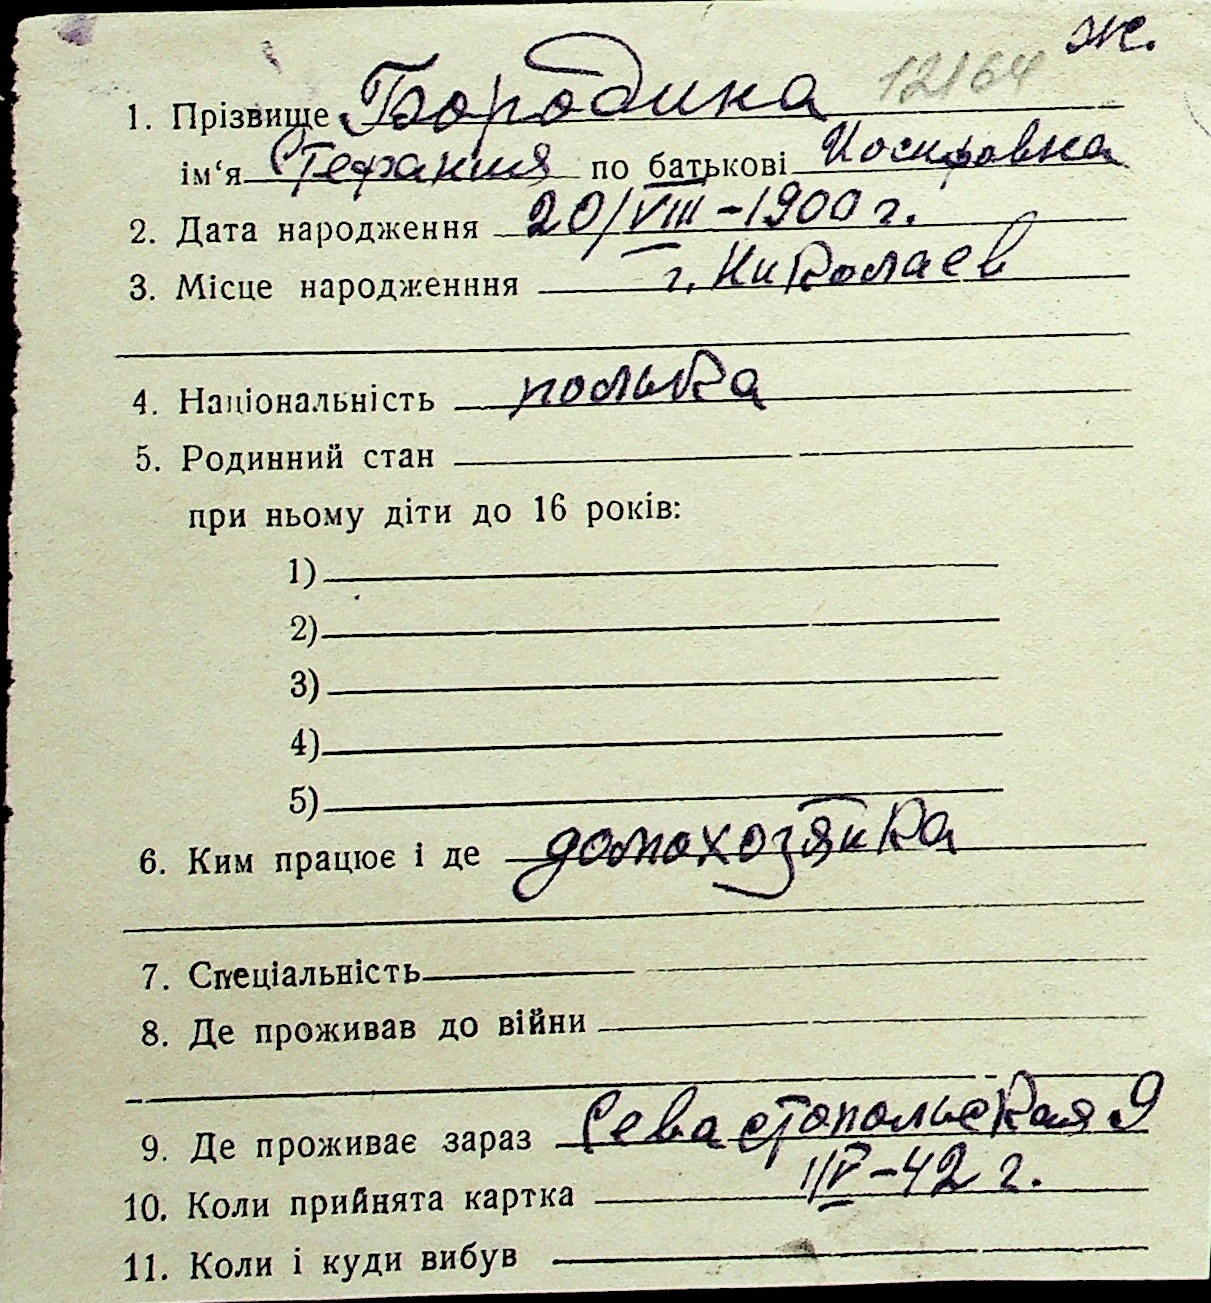 ж.
12164
1. Прізвище Бородина
ім‘я Стефания по батькові Иосифовна
2. Дата народження 20/VIII-1900 г.
3. Місце народженння г. Николаев
4. Національність полька
5. Родинний стан
при ньому діти до 16 років:
1)
2)
3)
4)
5)
6. Ким працює і де домохозяйка
7. Спеціальність
8. Де проживав до війни
9. Де проживає зараз Севастопольская 9
10. Коли прийнята картка 1/V-42 г.
11. Коли і куди вибув